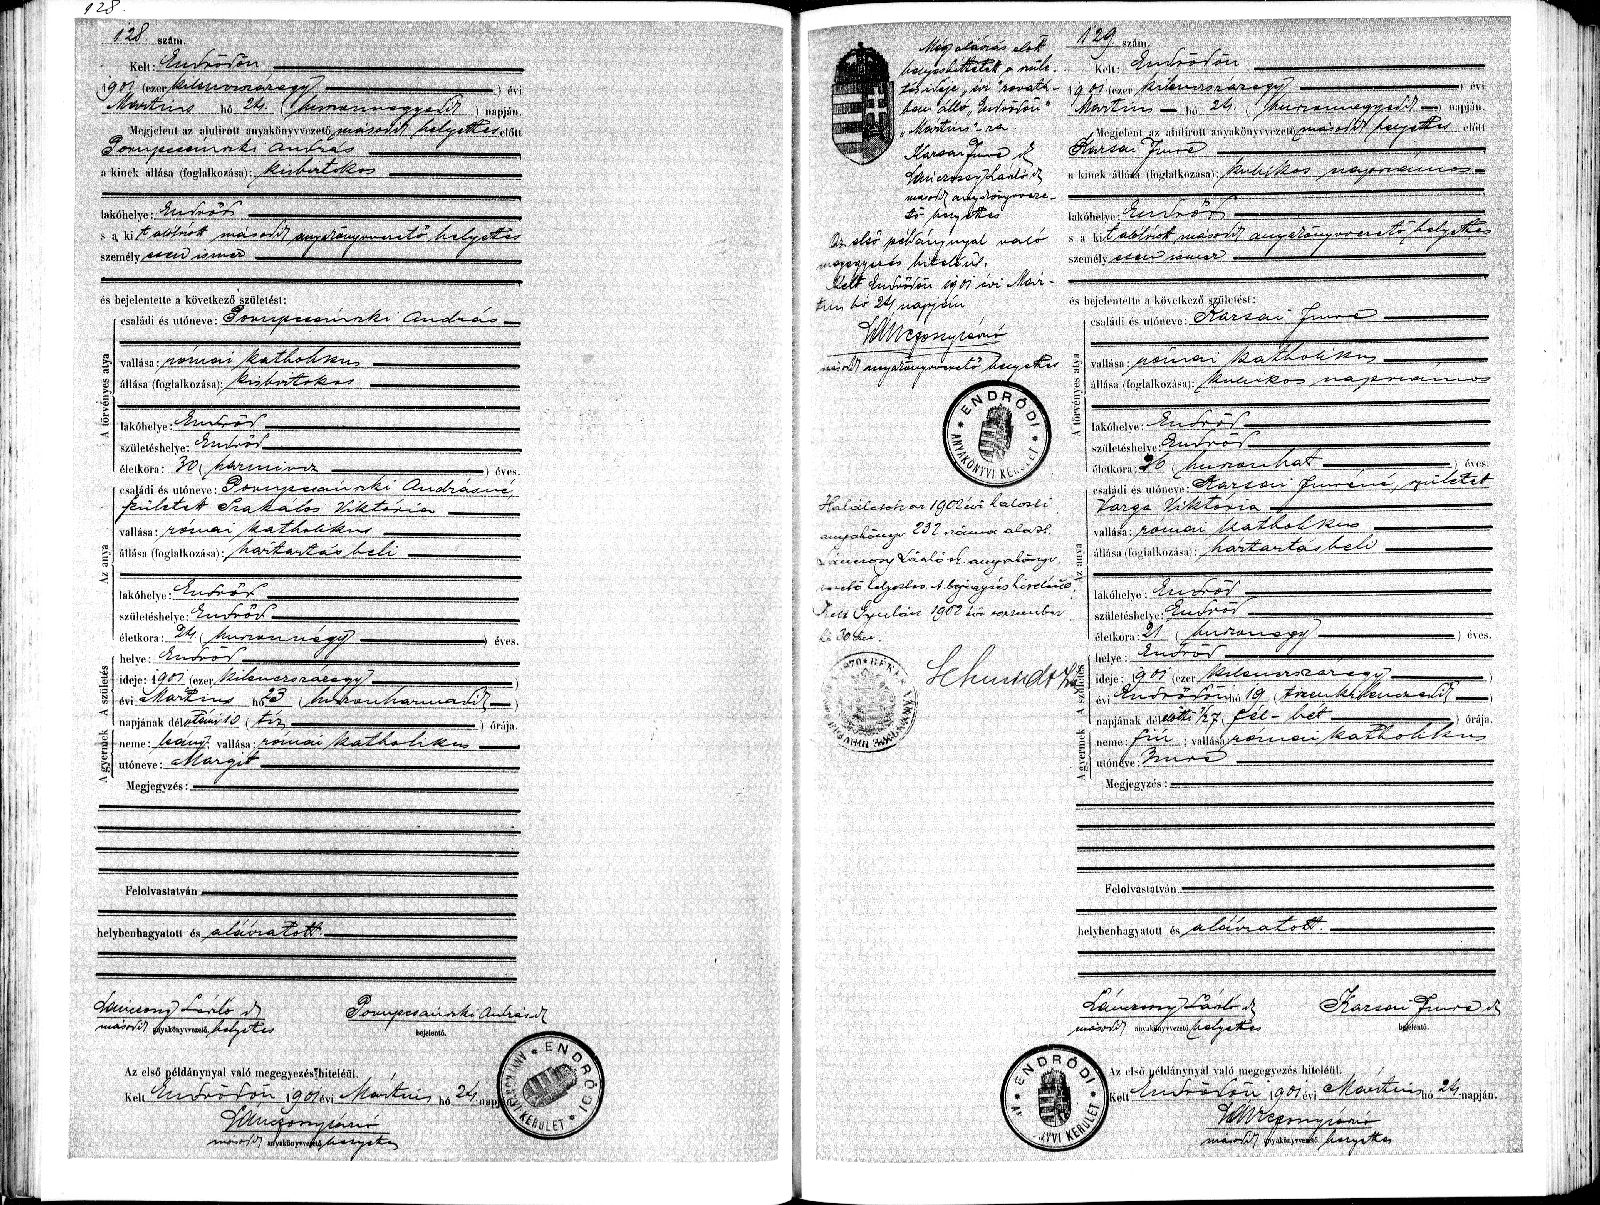 128.
128 szám.
Kelt: Endrődön
1901 (ezer kilenczszázegy) évi
Martius hó 24. (huszonnegyedik) napján.
Megjelent az alulirott anyakönyvvezető, második helyettes előtt
András
a kinek állása (foglalkozása): kisbirtokos
lakóhelye: Endrőd
s a kit alólirott második anyakönyvvezető helyettes
személyesen ismer
és bejelentette a következő születést:
A törvényes atya
családi és utóneve: András
vallása: római katholikus
állása (foglalkozása): kisbirtokos
lakóhelye: Endrőd
születéshelye: Endrőd
életkora: 30 (harmincz) éves.
Az anya
családi és utóneve: Andrásné,
született Szakálos Viktória
vallása: római katholikus
állása (foglalkozása): háztartásbeli
lakóhelye: Endrőd
születéshelye: Endrőd
életkora: 24 (huszonnégy) éves.
A gyermek A születés
helye: Endrőd
ideje: 1901 (ezer kilenczszázegy)
évi Martius hó 23 (huszonharmadik)
napjának délutáni 10 (tiz) órája.
neme: leány; vallása: római katholikus
utóneve: Margit
Megjegyzés:
Felolvastatván
helybenhagyatott és aláiratott.
Lánczony László sk András sk
második anyakönyvvezető helyettes bejelentő.
Az első példánynyal való megegyezés hiteléül.
Kelt Endrődön 1901 évi Mártius hó 24 napján
második anyakönyvvezető helyettes
ENDRŐDI ANYAKÖNYVI KERÜLET
Még aláirás előtt
helyesbittetik a szüle-
tés ideje, évi rovatá-
ban álló "Endrődön"
"Martius"-ra.
Karsai Imre sk
Lánczony László sk
második anyakönyvveze-
tő helyettes
Az első példánynyal való
megegyezés hiteléül.
Kelt Endrődön 1901 évi Már-
tius hó 24 napján
második anyakönyvvezető helyettes
ENDRŐDI ANYAKÖNYVI KERÜLET
1902 évi halotti
anyakönyv 232 száma alatt.
Lánczony László sk. anyakönyv
vezető helyettes. A bejegyzés hiteléül,
Kelt Gyulán 1902 évi
30 án.
129 szám.
Kelt: Endrődön
1901 (ezer kilenczszázegy) évi
Martius hó 24. (huszonnegyedik) napján.
Megjelent az alulirott anyakönyvvezető második helyettes előtt
Karsai Imre
a kinek állása (foglalkozása): kubikos napszámos
lakóhelye: Endrőd
s a kit alólirott második anyakönyvvezető helyettes
személyesen ismer
és bejelentette a következő születést:
A törvényes atya
családi és utóneve: Karsai Imre
vallása: római katholikus
állása (foglalkozása): kubikos napszámos
lakóhelye: Endrőd
születéshelye: Endrőd
életkora: 26 (huszonhat) éves.
Az anya
családi és utóneve: Karsai Imréné, született
Varga Viktória
vallása: római katholikus
állása (foglalkozása): háztartásbeli
lakóhelye: Endrőd
születéshelye: Endrőd
életkora: 21 (huszonegy) éves.
A gyermek A születés
helye: Endrőd
ideje: 1901 (ezer kilenczszázegy)
évi Endrődön hó 19 (tizenkilenczedik)
napjának délelőtti 1/2 7 (fél-hét) órája.
neme: fiú; vallása: római katholikus
utóneve: Imre
Megjegyzés:
Felolvastatván
helybenhagyatott és aláiratott.
Lánczony László sk Karsai Imre sk
második anyakönyvvezető helyettes bejelentő.
Az első példánynyal való megegyezés hiteléül.
Kelt Endrődön 1901 évi Mártius hó 24 napján.
második anyakönyvvezető helyettes
ENDRŐDI ANYAKÖNYVI KERÜLET